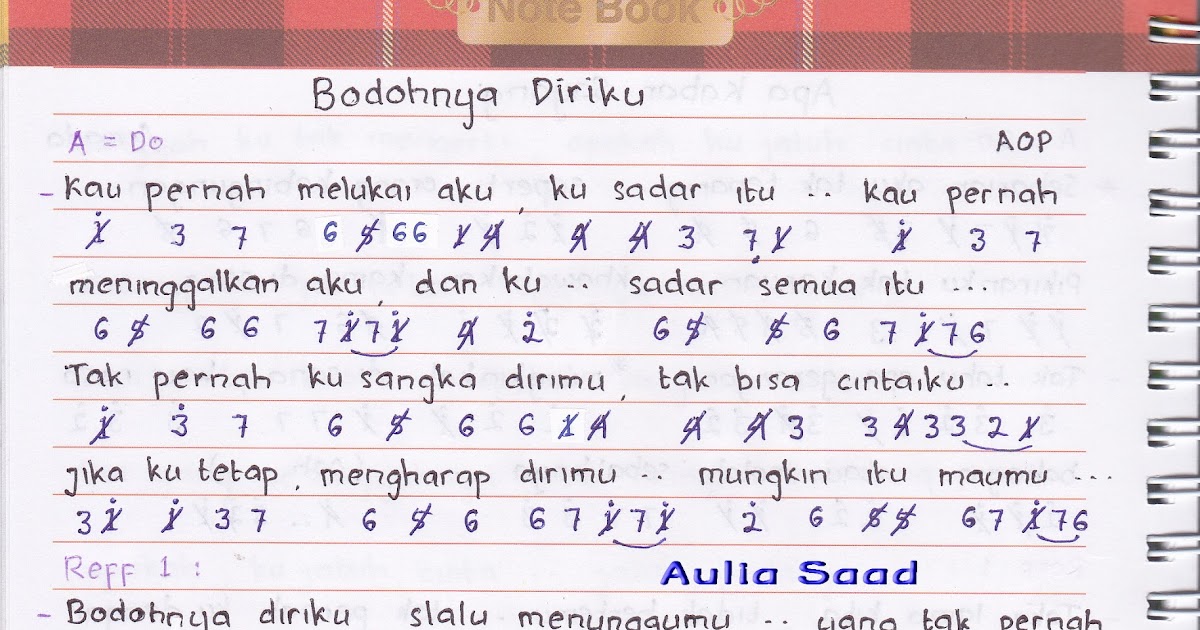 Note Book
Bodohnya Diriku
A = Do AOP
- Kau pernah melukai aku, ku sadar itu .. kau pernah
1̸̇ 3 7 6 5̸ 66 1̸ 4̸ 4̸ 4̸ 3 7̣ 1̸ 1̸̇ 3 7
meninggalkan aku, dan ku .. sadar semua itu ...
6 5̸ 6 6 7 1̸̇ 7 1̸̇ 4̸ 2̇ 6 5̸ 5̸ 6 7 1̸̇ 7 6
Tak pernah ku sangka dirimu, tak bisa cintaiku ..
1̸̇ 3̇ 7 6 5̸ 6 6 1̸ 4̸ 4̸ 4̸ 3 3 4̸ 3 3 2 1̸
jika ku tetap, mengharap dirimu .. mungkin itu maumu ...
3 1̸̇ 1̸̇ 3 7 6 5̸ 6 6 7 1̸̇ 7 1̸̇ 2̇ 6 5̸ 5̸ 6 7 1̸̇ 7 6
Reff 1 : Aulia Saad
- Bodohnya diriku slalu menunggumu .. yang tak pernah